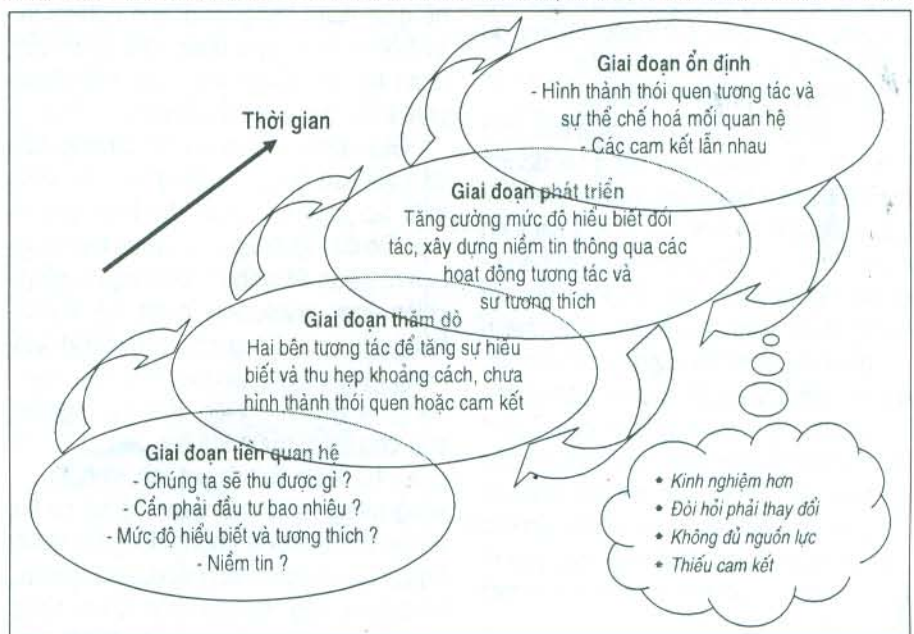 Giai đoạn ổn định
- Hình thành thói quen tương tác và
sự thể chế hoá mối quan hệ
- Các cam kết lẫn nhau
Thời gian
Giai đoạn phát triển
Tăng cường mức độ hiểu biết đối
tác, xây dựng niềm tin thông qua các
hoạt động tương tác và
sự tương thích
Giai đoạn thăm dò
Hai bên tương tác để tăng sự hiểu
biết và thu hẹp khoảng cách, chưa
hình thành thói quen hoặc cam kết
Giai đoạn tiền quan hệ
- Chúng ta sẽ thu được gì ?
- Cần phải đầu tư bao nhiêu ?
- Mức độ hiểu biết và tương thích ?
- Niềm tin ?
• Kinh nghiệm hơn
• Đòi hỏi phải thay đổi
• Không đủ nguồn lực
• Thiếu cam kết